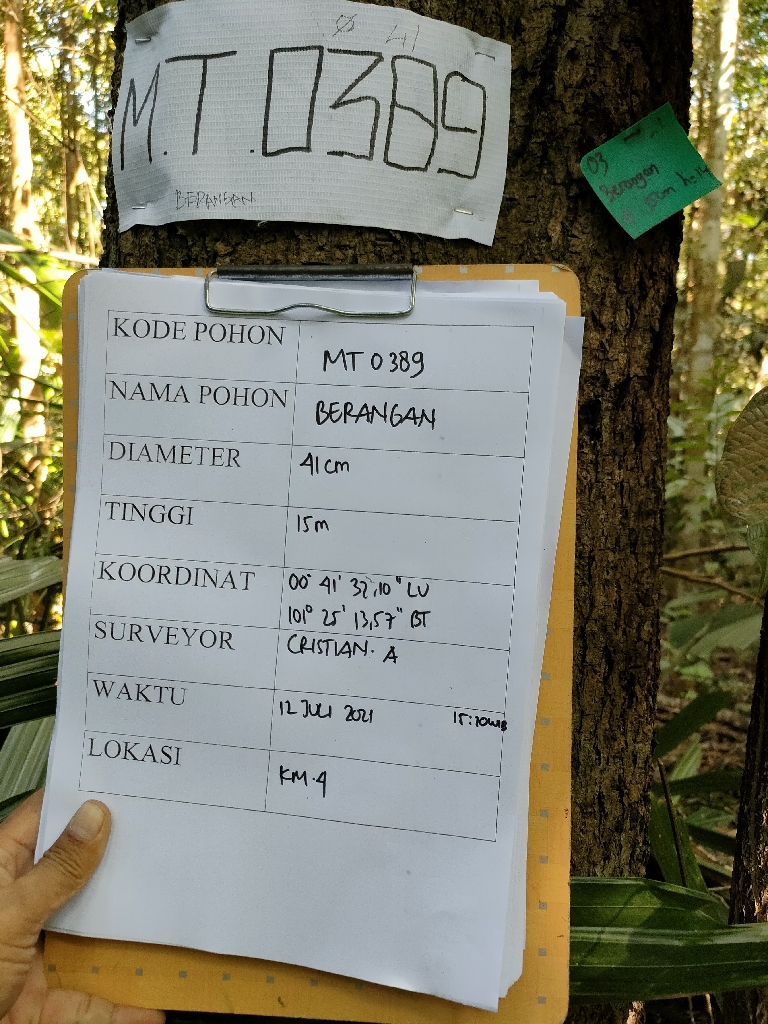 Ø 41
M.T.0389
BERANGAN
03
Berangan
KODE POHON
MT 0389
NAMA POHON
BERANGAN
DIAMETER
41 cm
TINGGI
15m
KOORDINAT
00° 41' 32,10" LU
101° 25' 13,57" BT
SURVEYOR
CRISTIAN. A
WAKTU
12 JULI 2021 15:20 WIB
LOKASI
KM.4